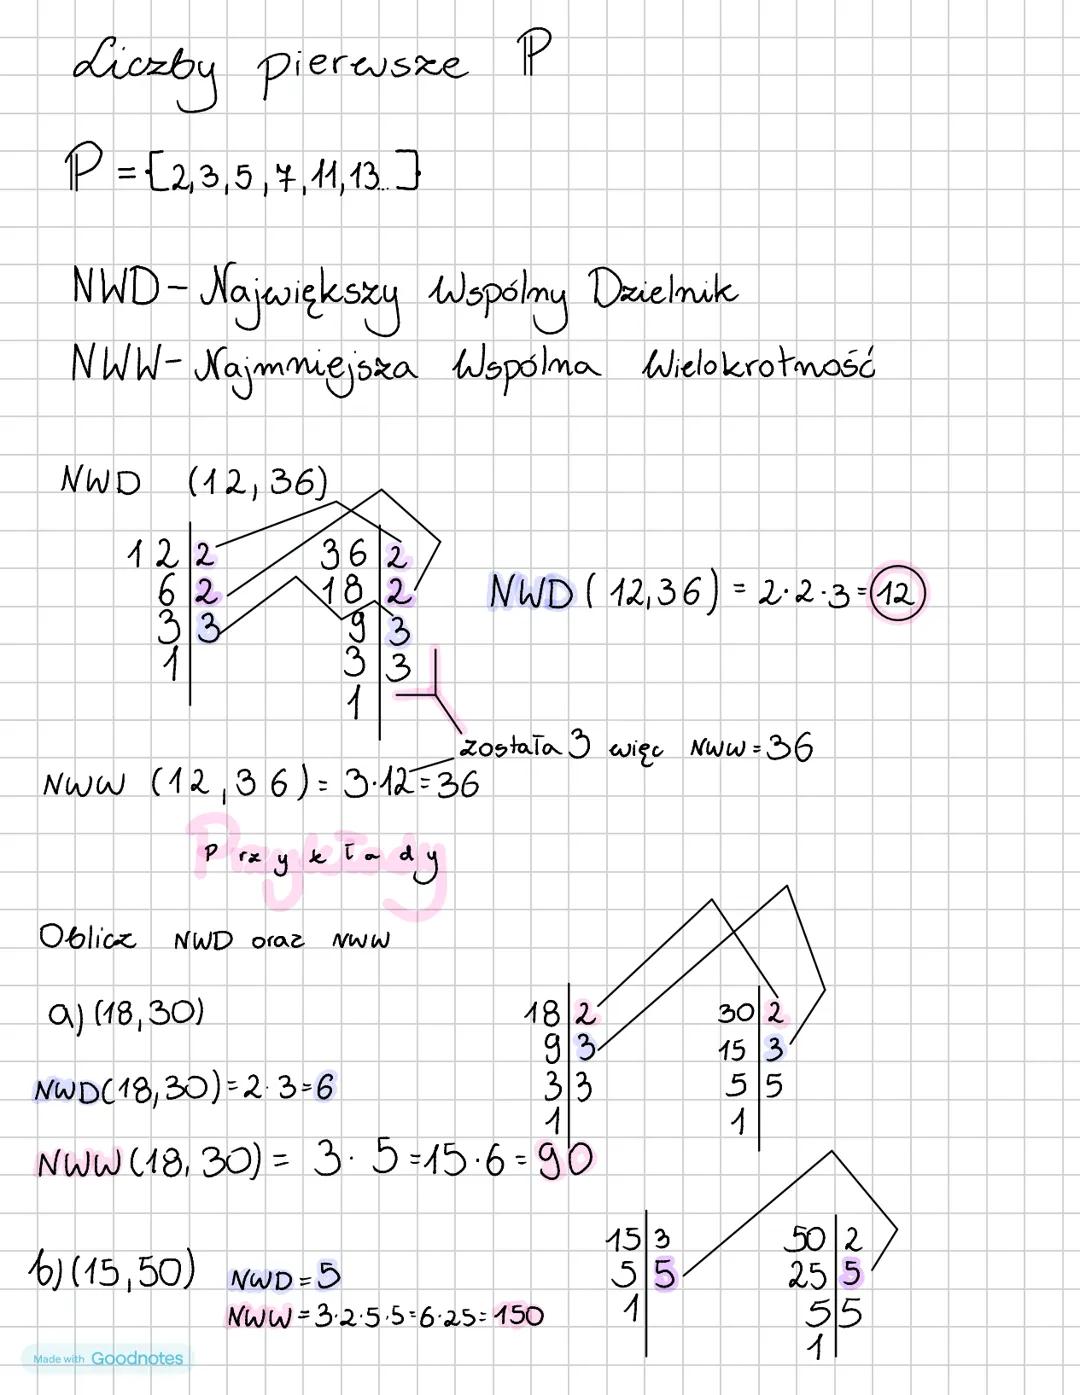 Liczby pierwsze ℙ
ℙ = {2,3,5,7,11,13...}
NWD - Największy Wspólny Dzielnik
NWW - Najmniejsza Wspólna Wielokrotność
NWD (12,36)
12|2
6|2
3|3
1
36|2
18|2
9|3
3|3
1
NWD (12,36) = 2·2·3=12
została 3 więc NWW=36
NWW (12,36) = 3·12=36
Przykłady
Oblicz NWD oraz NWW
a) (18,30)
18|2
9|3
3|3
1
30|2
15|3
5|5
1
NWD(18,30)=2·3=6
NWW(18,30) = 3·5=15·6=90
b) (15,50)
NWD=5
NWW=3·2·5·5=6·25=150
15|3
5|5
1
50|2
25|5
5|5
1
Made with Goodnotes